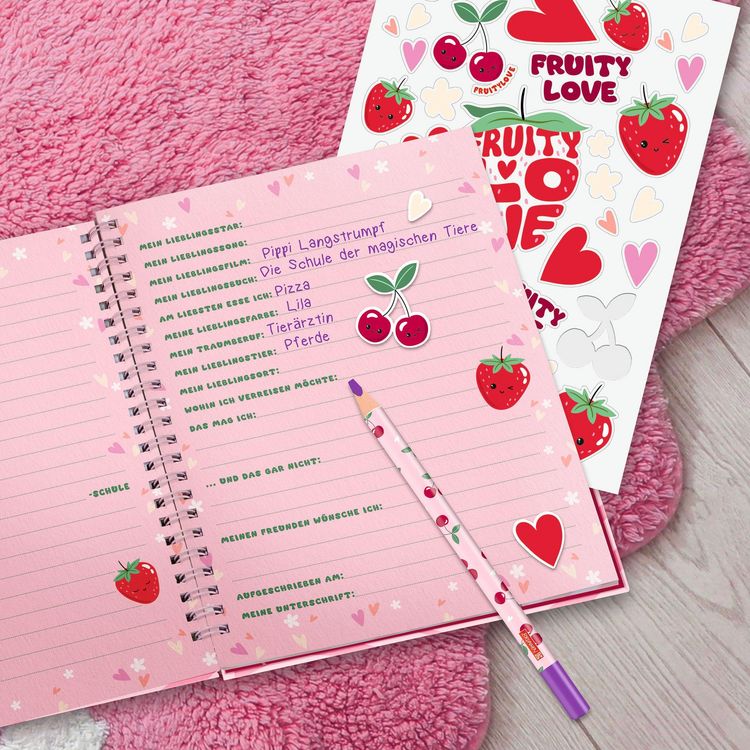 FRUITYLOVE
FRUITY
LOVE
FRUITY
LO
VE
MEIN LIEBLINGSSTAR:
MEIN LIEBLINGSSONG:
MEIN LIEBLINGSFILM: Pippi Langstrumpf
MEIN LIEBLINGSBUCH: Die Schule der magischen Tiere
AM LIEBSTEN ESSE ICH: Pizza
MEINE LIEBLINGSFARBE: Lila
MEIN TRAUMBERUF: Tierärztin
MEIN LIEBLINGSTIER: Pferde
MEIN LIEBLINGSORT:
WOHIN ICH VERREISEN MÖCHTE:
DAS MAG ICH:
... UND DAS GAR NICHT:
-SCHULE
MEINEN FREUNDEN WÜNSCHE ICH:
AUFGESCHRIEBEN AM:
MEINE UNTERSCHRIFT: